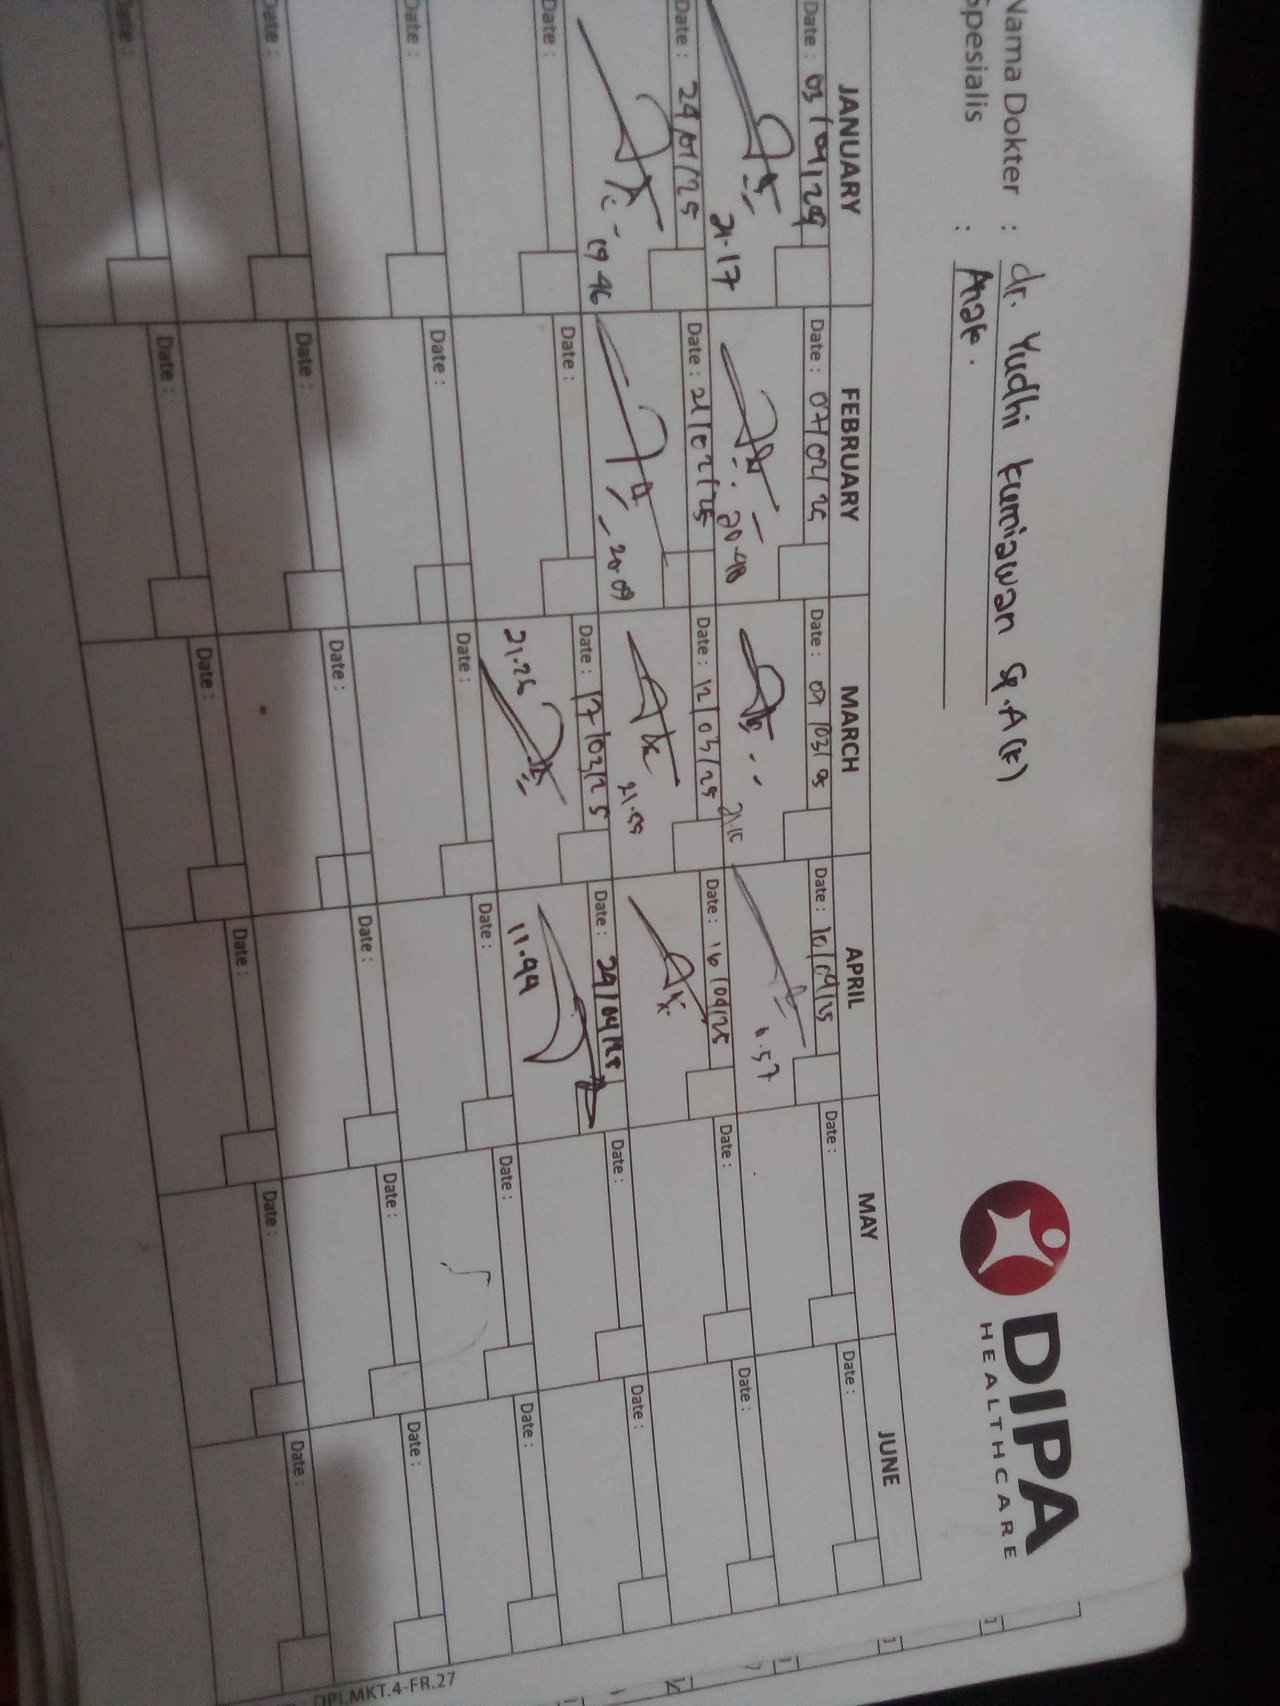 DIPA
HEALTHCARE
Nama Dokter : dr. Yudhi Kurniawan Sp.A(K)
Spesialis : Anak.
JANUARY FEBRUARY MARCH APRIL MAY JUNE
Date : 03/01/25 Date : 07/02/25 Date : 07/03/25 Date : 10/04/25 Date : Date :
21.17 20.48 21.15 11.57
Date : 24/01/25 Date : 21/02/25 Date : 12/03/25 Date : 16/04/25 Date : Date :
19 46 20.09 21.59
Date : Date : Date : 17/03/25 Date : 29/04/25 Date : Date :
21.25 11.44
Date : Date : Date : Date : Date : Date :
Date : Date : Date : Date : Date : Date :
Date : Date : Date : Date : Date : Date :
DPI.MKT.4-FR.27